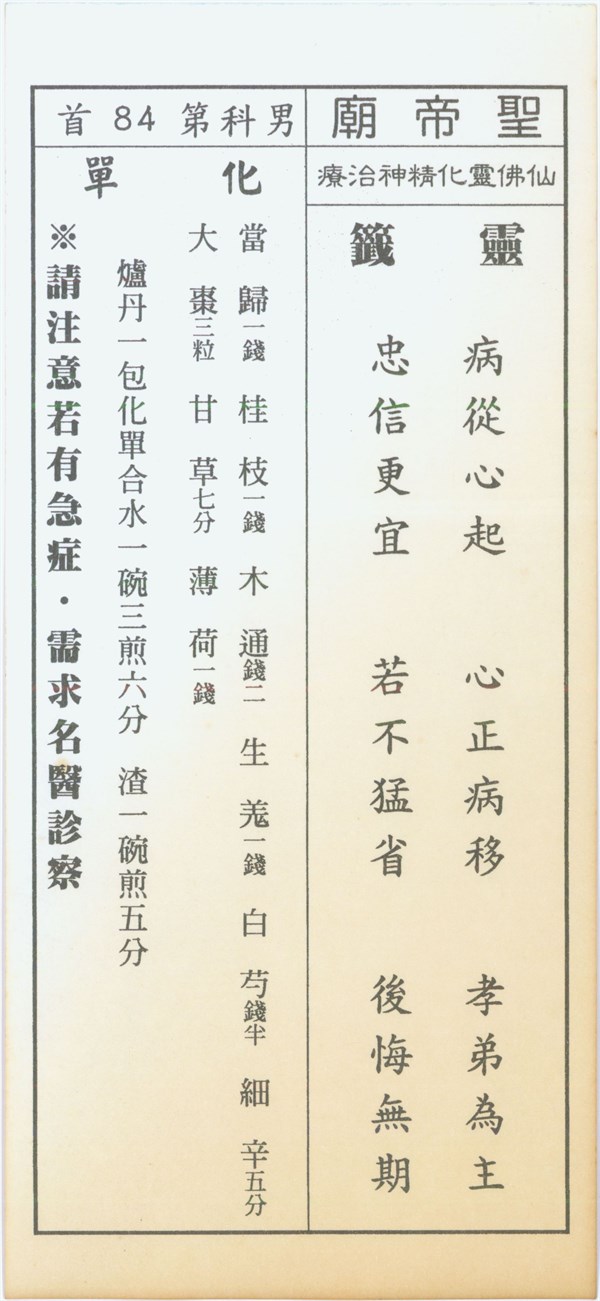 聖帝廟
仙佛靈化精神治療
靈籤
病從心起 心正病移 孝弟為主
忠信更宜 若不猛省 後悔無期
男科第84首
化單
當歸一錢 桂枝一錢 木通錢二 生羗一錢 白芍錢半 細辛五分
大棗三粒 甘草七分 薄荷一錢
爐丹一包化單合水一碗三煎六分 渣一碗煎五分
※請注意若有急症・需求名醫診察